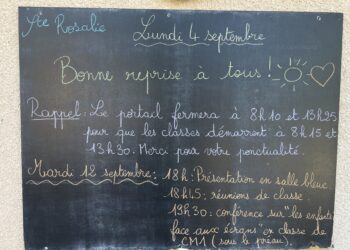 Ste Rosalie
Lundi 4 septembre
Bonne reprise à tous !
Rappel : Le portail fermera à 8h10 et 13h25
pour que les classes démarrent à 8h15 et
13h30. Merci pour votre ponctualité.
Mardi 12 septembre : 18h : Présentation en salle bleue
18h45 : réunions de classe
19h30 : conférence sur "les enfants
face aux écrans" en classe de
CM1 (sous le préau)